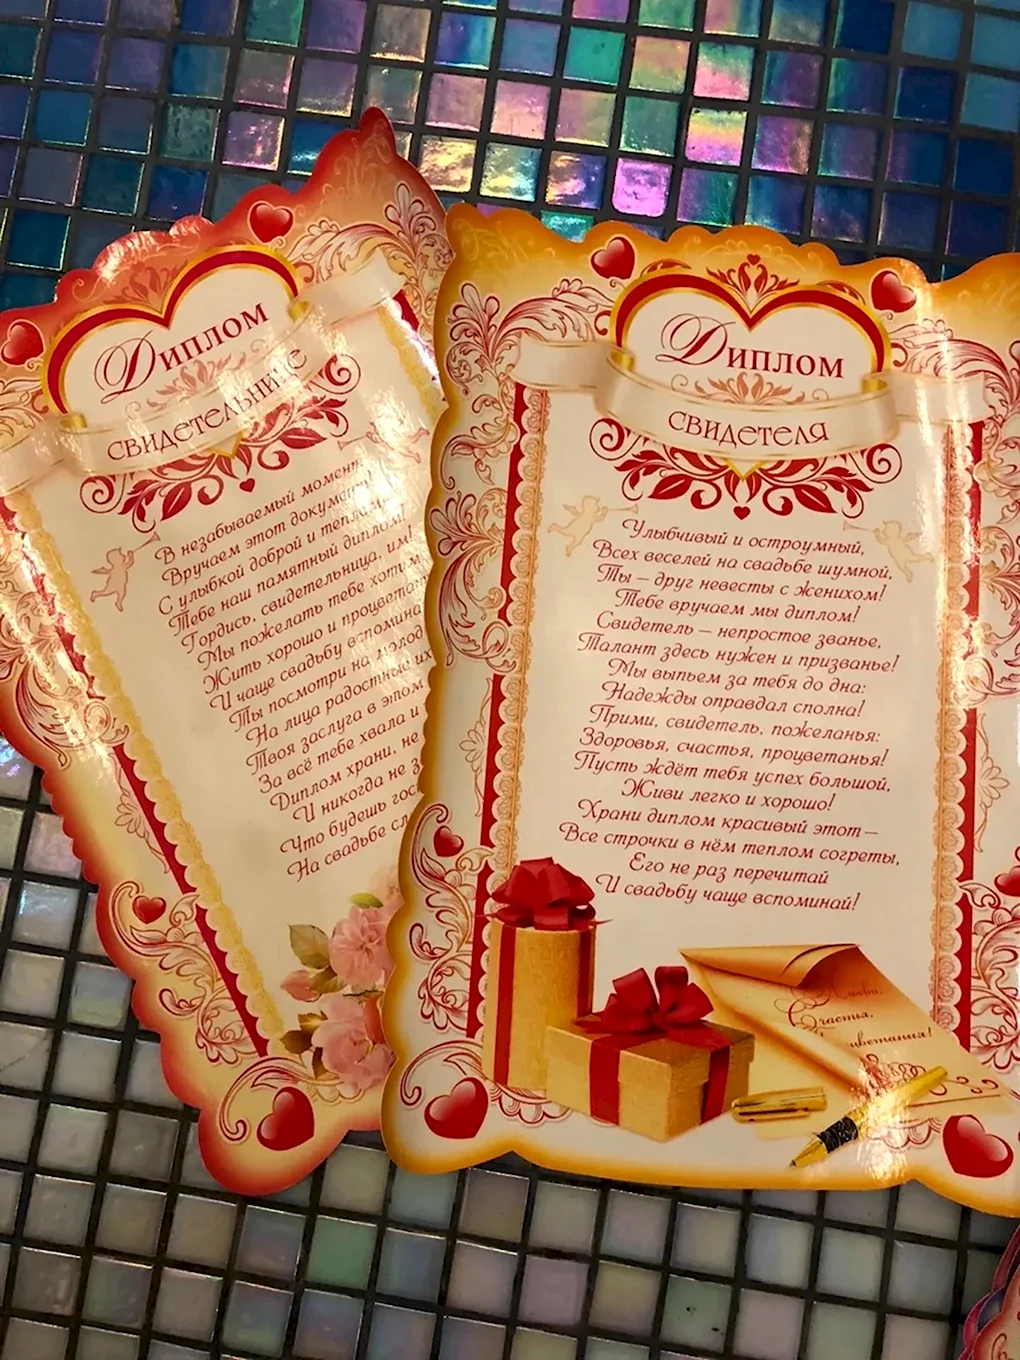 Диплом
свидетельнице
В незабываемый момент
Вручаем этот документ,
С улыбкой доброй и теплом
Тебе наш памятный диплом!
Гордись, свидетельница, им!
Мы пожелать тебе хотим
Жить хорошо и процветать
И чаще свадьбу вспоминать
Ты посмотри на молодых
На лица радостные их
Твоя заслуга в этом
За всё тебе хвала и
Диплом храни, не
И никогда не
Что будешь
На свадьбе
Диплом
свидетеля
Улыбчивый и остроумный,
Всех веселей на свадьбе шумной,
Ты – друг невесты с женихом!
Тебе вручаем мы диплом!
Свидетель – непростое званье,
Талант здесь нужен и призванье!
Мы выпьем за тебя до дна:
Надежды оправдал сполна!
Прими, свидетель, пожеланья:
Здоровья, счастья, процветанья!
Пусть ждёт тебя успех большой,
Живи легко и хорошо!
Храни диплом красивый этот –
Все строчки в нём теплом согреты,
Его не раз перечитай
И свадьбу чаще вспоминай!
Любви,
Счастья,